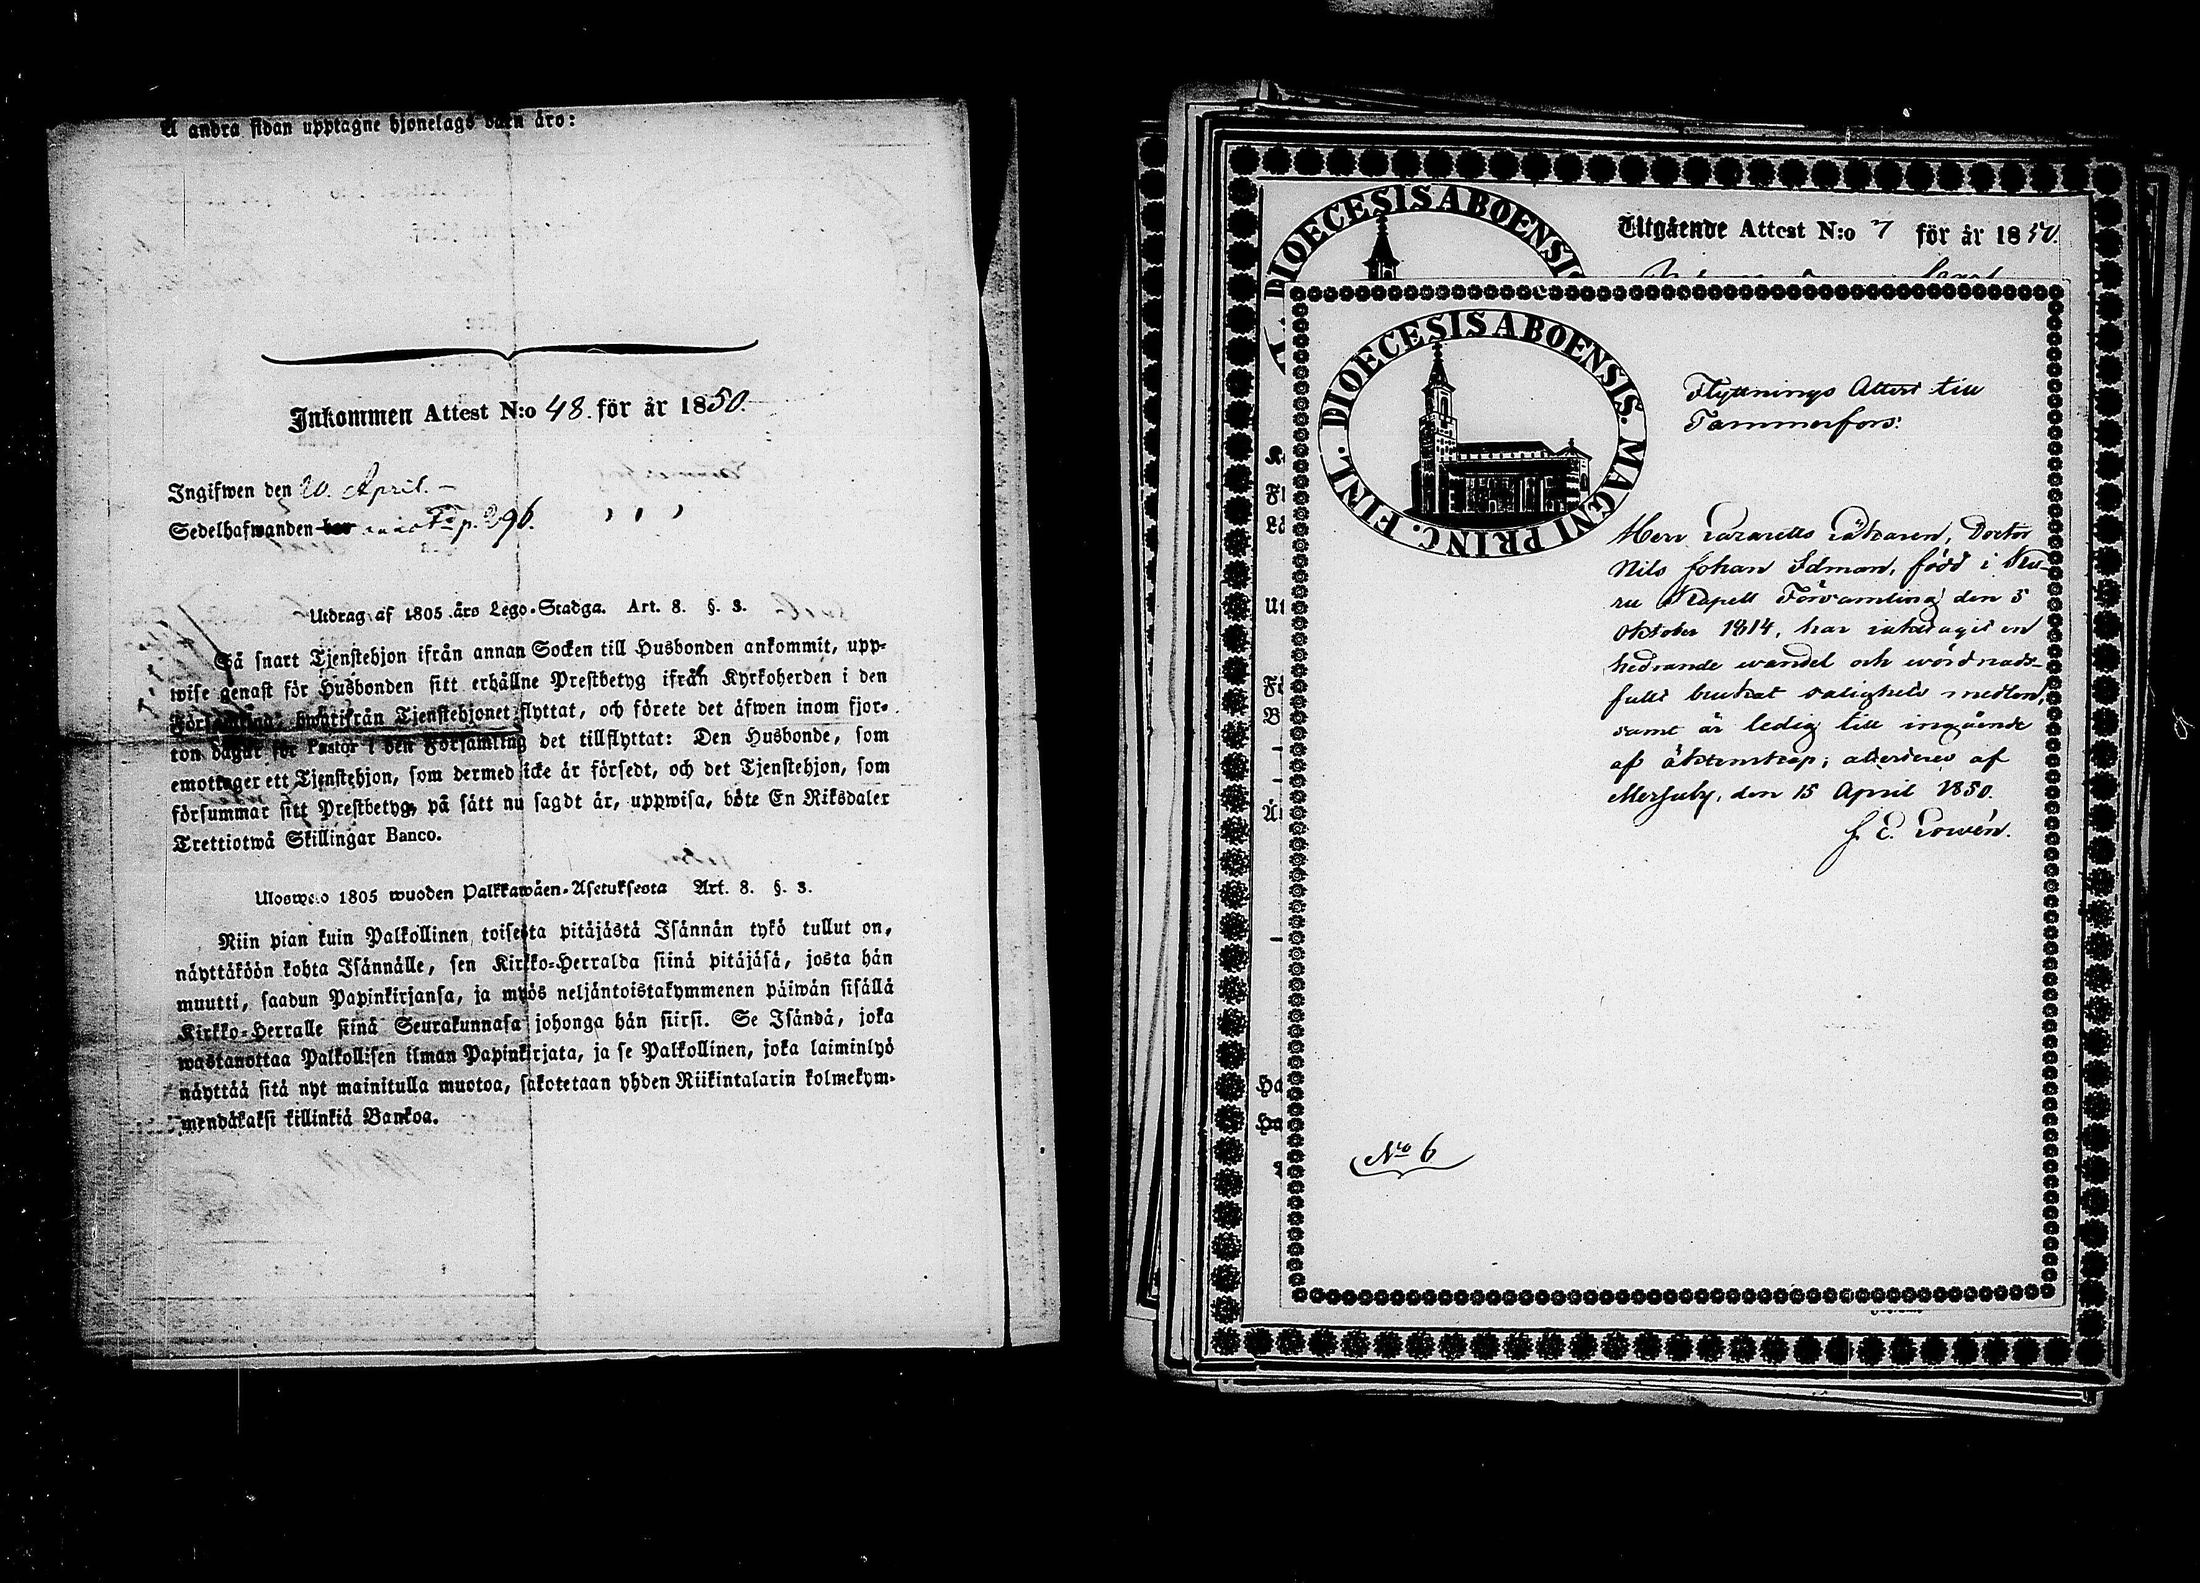 Å andra sidan upptagne hjonelags barn äro:
Inkommen Attest N:o 48. för år 1850.
Ingifwen den 20. April. –
Sedelhafwanden p. 296.
Utdrag af 1805 års Lego-Stadga. Art. 8. §. 3.
Så snart Tjenstehjon ifrån annan Socken till Husbonden ankommit, upp-
wise genast för Husbonden sitt erhållne Prestbetyg ifrån Kyrkoherden i den
Församling, hwarifrån Tjenstehjonet flyttat, och förete det äfwen inom fjor-
ton dagar för Pastor i den Församling det tillflyttat: Den Husbonde, som
emottager ett Tjenstehjon, som dermed icke är försedt, och det Tjenstehjon, som
försummar sitt Prestbetyg, på sätt nu sagdt är, uppwisa, böte En Riksdaler
Trettiotwå Skillingar Banco.
Ulosweto 1805 wuoden Palkkawäen-Asetuksesta Art. 8. §. 3.
Niin pian kuin Palkollinen toisesta pitäjästä Isännän tykö tullut on,
näyttäköön kohta Isännälle, sen Kirkko-Herralda siinä pitäjäsä, josta hän
muutti, saadun Papinkirjansa, ja myös neljäntoistakymmenen päiwän sisällä
Kirkko-Herralle siinä Seurakunnasa johonga hän siirsi. Se Isändä, joka
wastanottaa Palkollisen ilman Papinkirjata, ja se Palkollinen, joka laiminlyö
näyttää sitä nyt mainitulla muotoa, sakotetaan yhden Riikintalarin kolmekym-
mendäkaksi killinkiä Bankoa.
DIOECESIS ABOENSIS
Utgående Attest N:o 7 för år 1850.
DIOECESIS ABOENSIS. MAGNI PRINC. FINL.
Flyttnings Attest till
Tammerfors:
Herr Lazaretts Läkaren, Doctor
Nils Johan Idman, född i
Kapell Församling den 5
Oktober 1814, har iakttagit en
hedrande wandel och wördnads-
fullt brukat salighets medlen,
samt är ledig till ingående
af äktenskap; attesteras af
Messuby, den 15 April 1850.
N:o 6